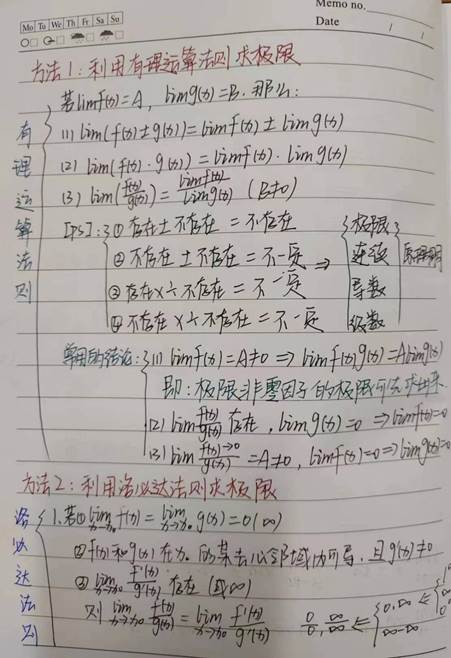 Memo no.
Mo Tu We Th Fr Sa Su
Date / /
方法1：利用有理运算法则求极限
有理运算法则
若limf(x)=A，limg(x)=B. 那么：
(1) lim(f(x)±g(x))=limf(x)±limg(x)
(2) lim(f(x)·g(x))=limf(x)·limg(x)
(3) lim(f(x)/g(x))=limf(x)/limg(x) (B≠0)
[PS]：① 存在±不存在=不存在
② 不存在±不存在=不一定
③ 存在×÷不存在=不一定
④ 不存在×÷不存在=不一定
⇒ 极限
连续
导数
级数
常用的结论：(1) limf(x)=A≠0 ⇒ limf(x)g(x)=Alimg(x)
即：极限非零因子的极限可先求出来.
(2) lim f(x)/g(x) 存在，limg(x)=0 ⇒ limf(x)=0
(3) lim f(x)→0/g(x) =A≠0，limf(x)=0 ⇒ limg(x)=0
方法2：利用洛必达法则求极限
洛必达法则
1.若① lim x→x₀ f(x)=lim x→x₀ g(x)=0(∞)
② f(x)和g(x)在x₀的某去心邻域内可导，且g'(x)≠0
③ lim x→x₀ f'(x)/g'(x) 存在 (或∞)
则 lim x→x₀ f(x)/g(x) = lim x→x₀ f'(x)/g'(x)
0/0, ∞/∞ ⇐ 0·∞ ⇐
∞-∞